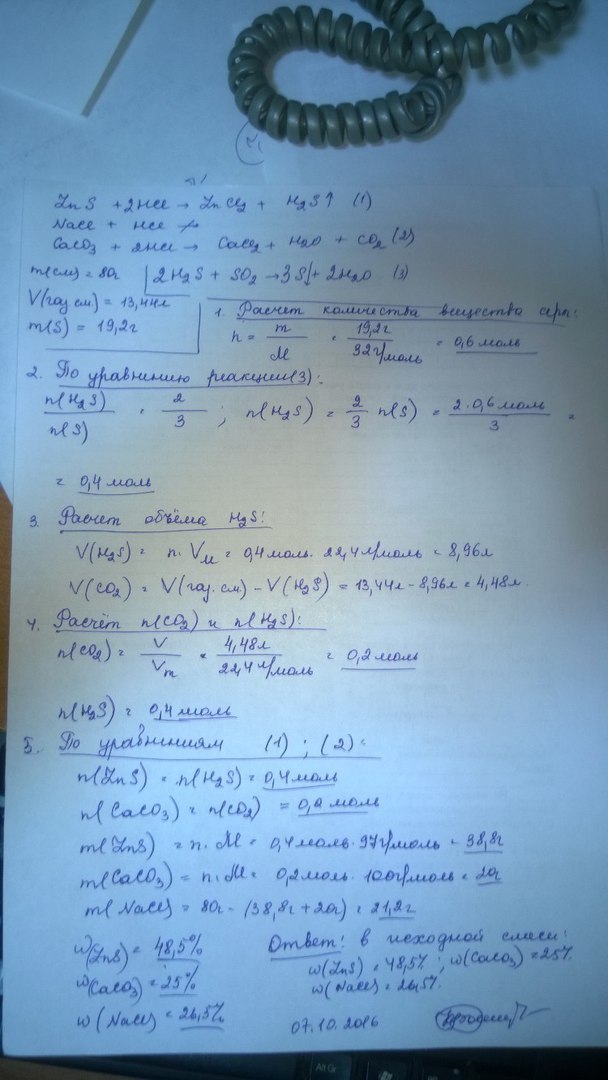 ZnS + 2HCl → ZnCl₂ + H₂S↑ (1)
NaCl + HCl ↛
CaCO₃ + 2HCl → CaCl₂ + H₂O + CO₂ (2)
m(см) = 80г 2H₂S + SO₂ → 3S↓ + 2H₂O (3)
V(газ см) = 13,44л
m(S) = 19,2г
1. Расчет количества вещества серы:
n = m/M = 19,2г/32г/моль = 0,6 моль
2. По уравнению реакции(3):
n(H₂S)/n(S) = 2/3 ; n(H₂S) = 2/3 n(S) = 2·0,6моль/3 =
= 0,4 моль
3. Расчет объёма H₂S:
V(H₂S) = n·Vм = 0,4моль·22,4л/моль = 8,96л
V(CO₂) = V(газ.см) – V(H₂S) = 13,44л – 8,96л = 4,48л.
4. Расчёт n(CO₂) и n(H₂S):
n(CO₂) = V/Vm = 4,48л/22,4л/моль = 0,2моль
n(H₂S) = 0,4моль
5. По уравнениям (1) ; (2):
n(ZnS) = n(H₂S) = 0,4моль
n(CaCO₃) = n(CO₂) = 0,2 моль
m(ZnS) = n·M = 0,4моль·97г/моль = 38,8г
m(CaCO₃) = n·M = 0,2моль·100г/моль = 20г
m(NaCl) = 80г – (38,8г + 20г) = 21,2г
w(ZnS) = 48,5%
w(CaCO₃) = 25%
w(NaCl) = 26,5%
Ответ: в исходной смеси:
w(ZnS) = 48,5% ; w(CaCO₃) = 25%
w(NaCl) = 26,5%.
07.10.2016
Alt Gr